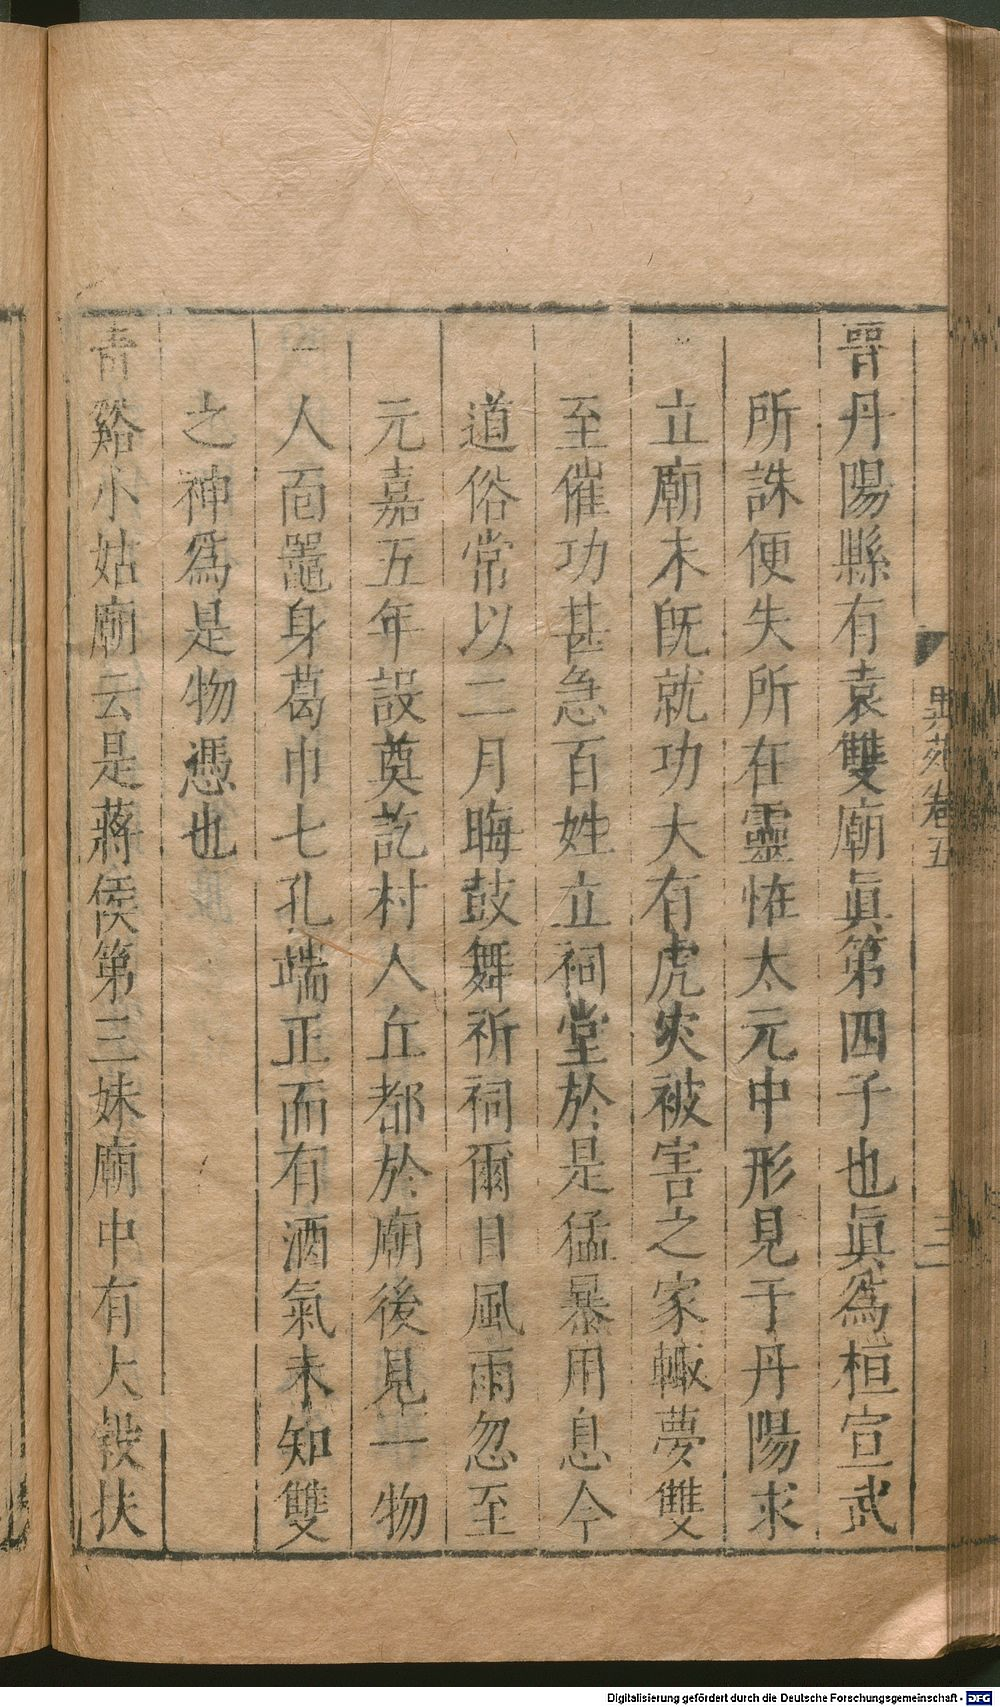 晉丹陽縣有袁雙廟眞第四子也眞爲桓宣武
所誅便失所在靈怪太元中形見于丹陽求
立廟未旣就功大有虎災被害之家輙夢雙
至催功甚急百姓立祠堂於是猛暴用息今
道俗常以二月晦鼓舞祈祠爾日風雨忽至
元嘉五年設奠訖村人丘都於廟後見一物
人面鼉身葛巾七孔端正而有酒氣未知雙
之神爲是物憑也
青谿小姑廟云是蔣侯第三妹廟中有大榖扶
異苑卷五
三
Digitalisierung gefördert durch die Deutsche Forschungsgemeinschaft - DFG